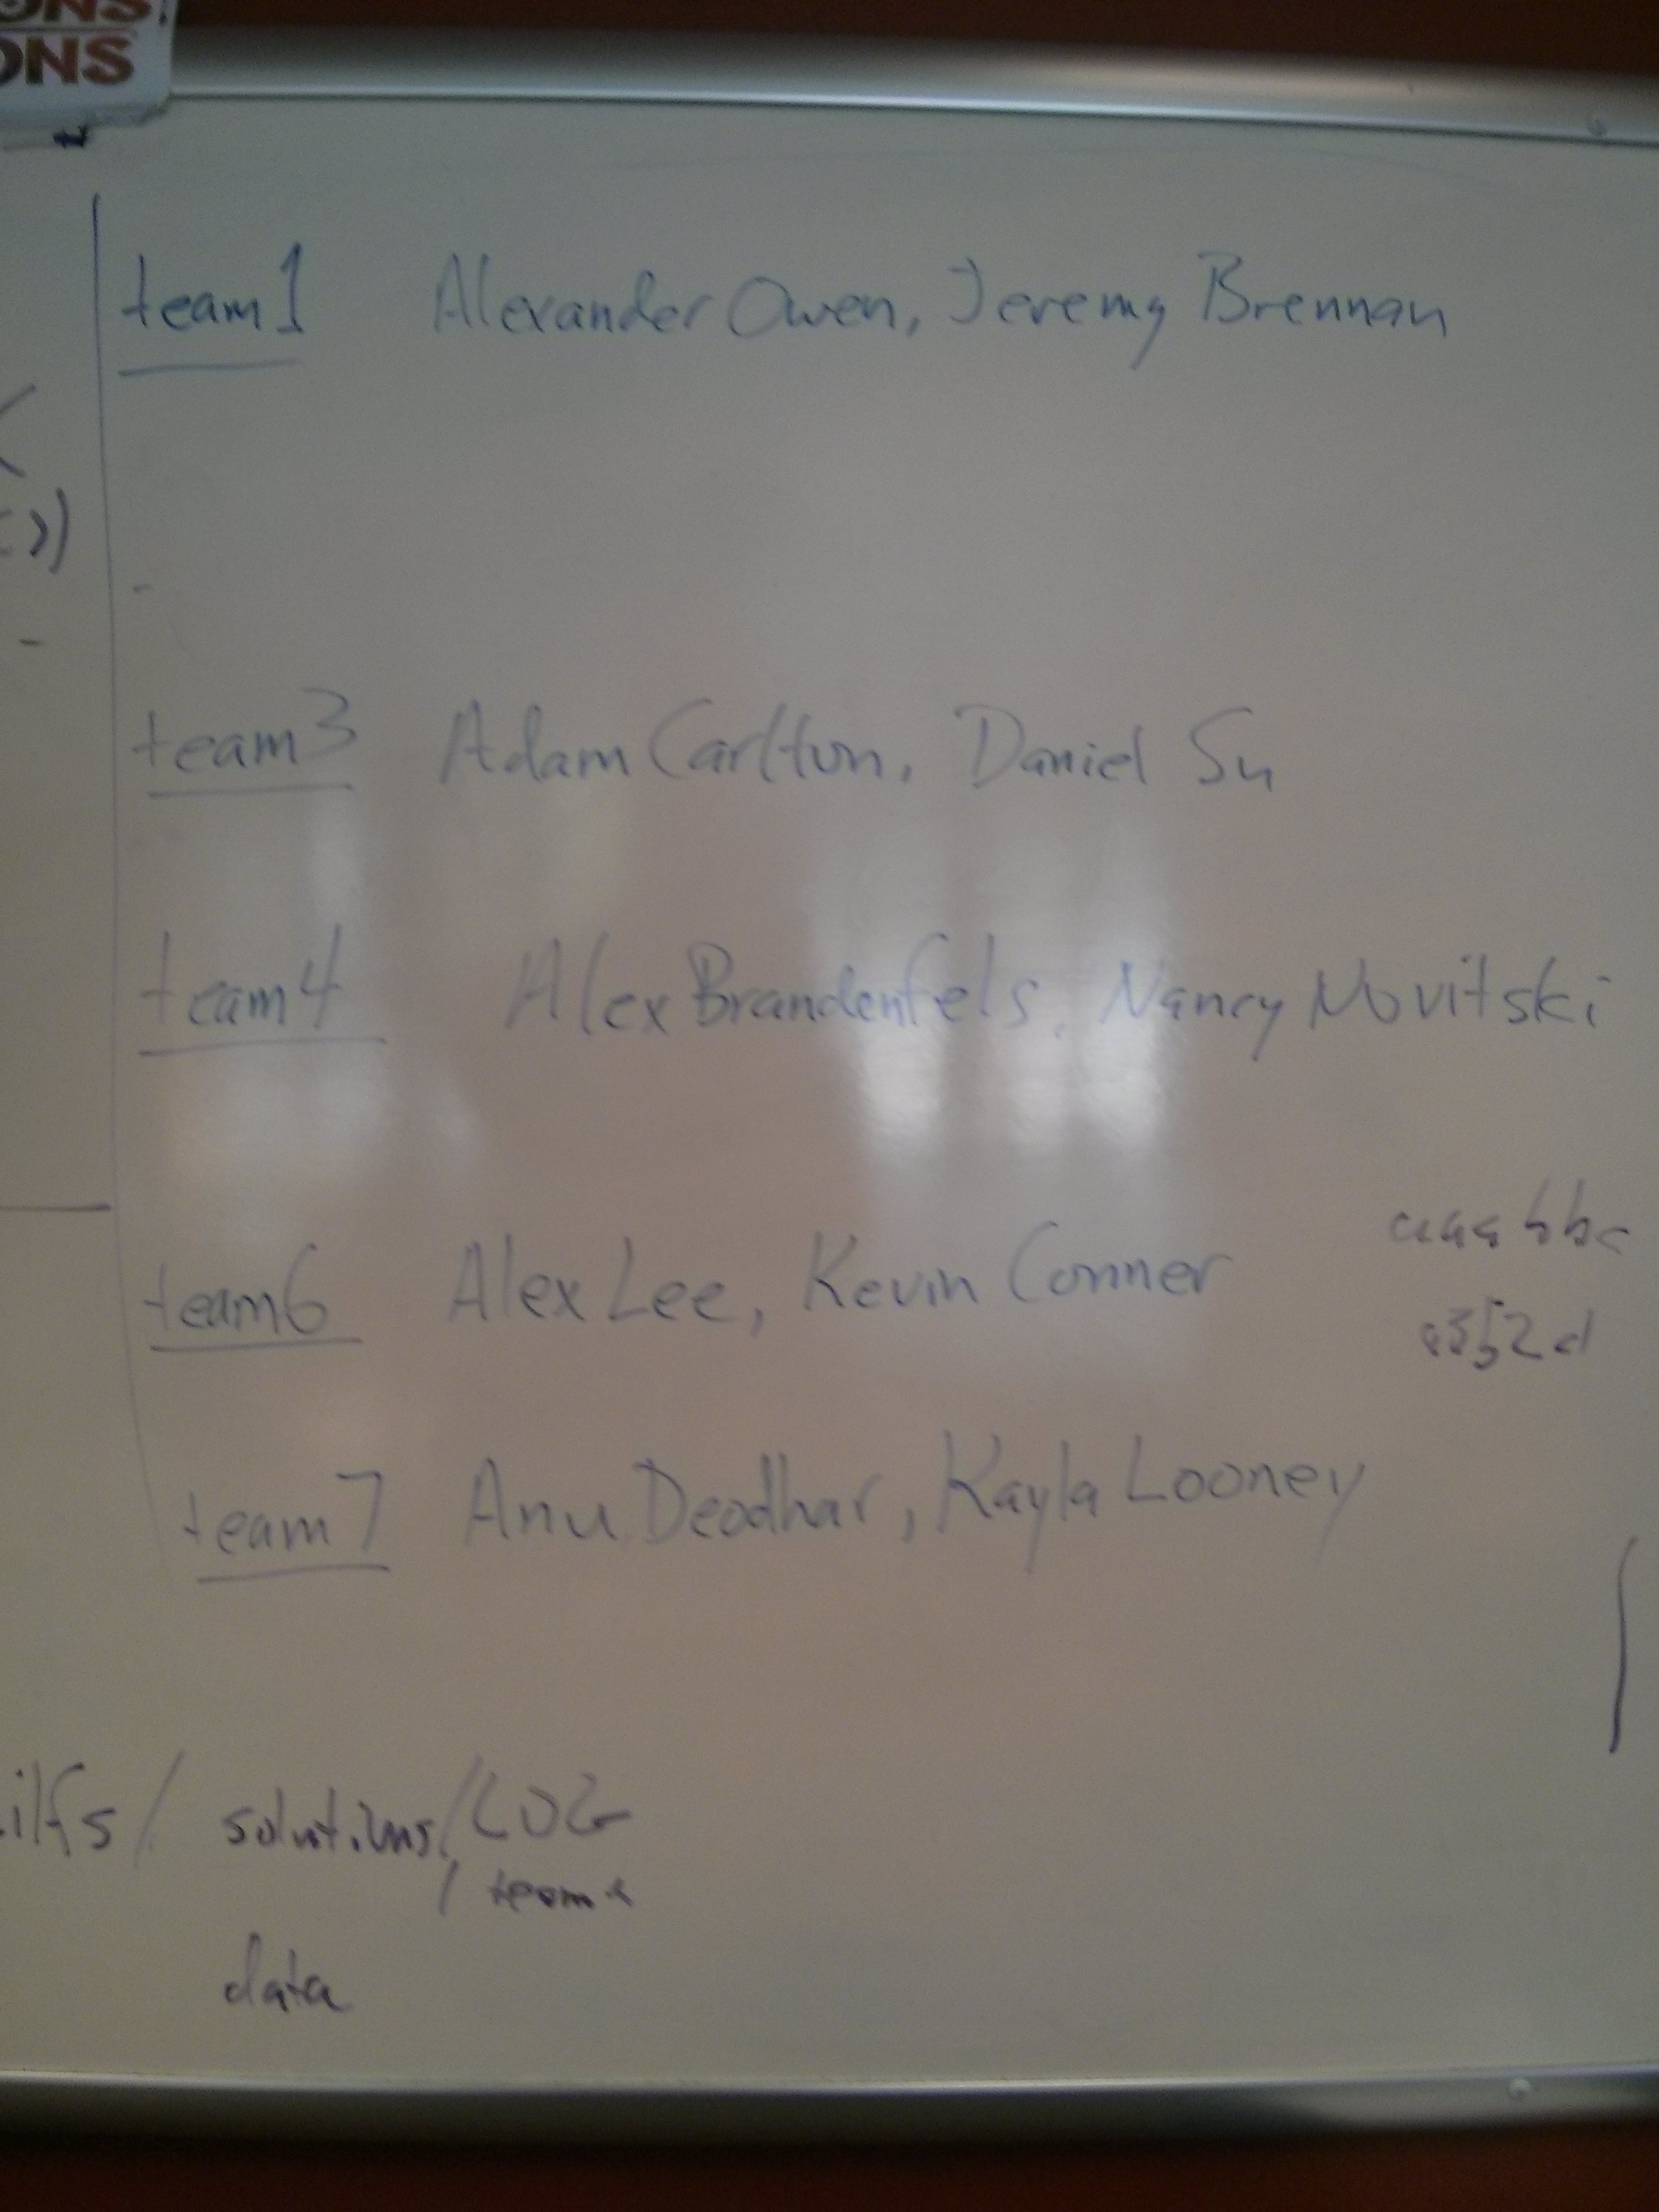 ONS
ONS
team1 Alexander Owen, Jeremy Brennan
team3 Adam Carlton, Daniel Su
team4 Alex Brandenfels, Nancy Novitski
team6 Alex Lee, Kevin Conner
a3b2d
team7 Anu Deodhar, Kayla Looney
solutions/
data